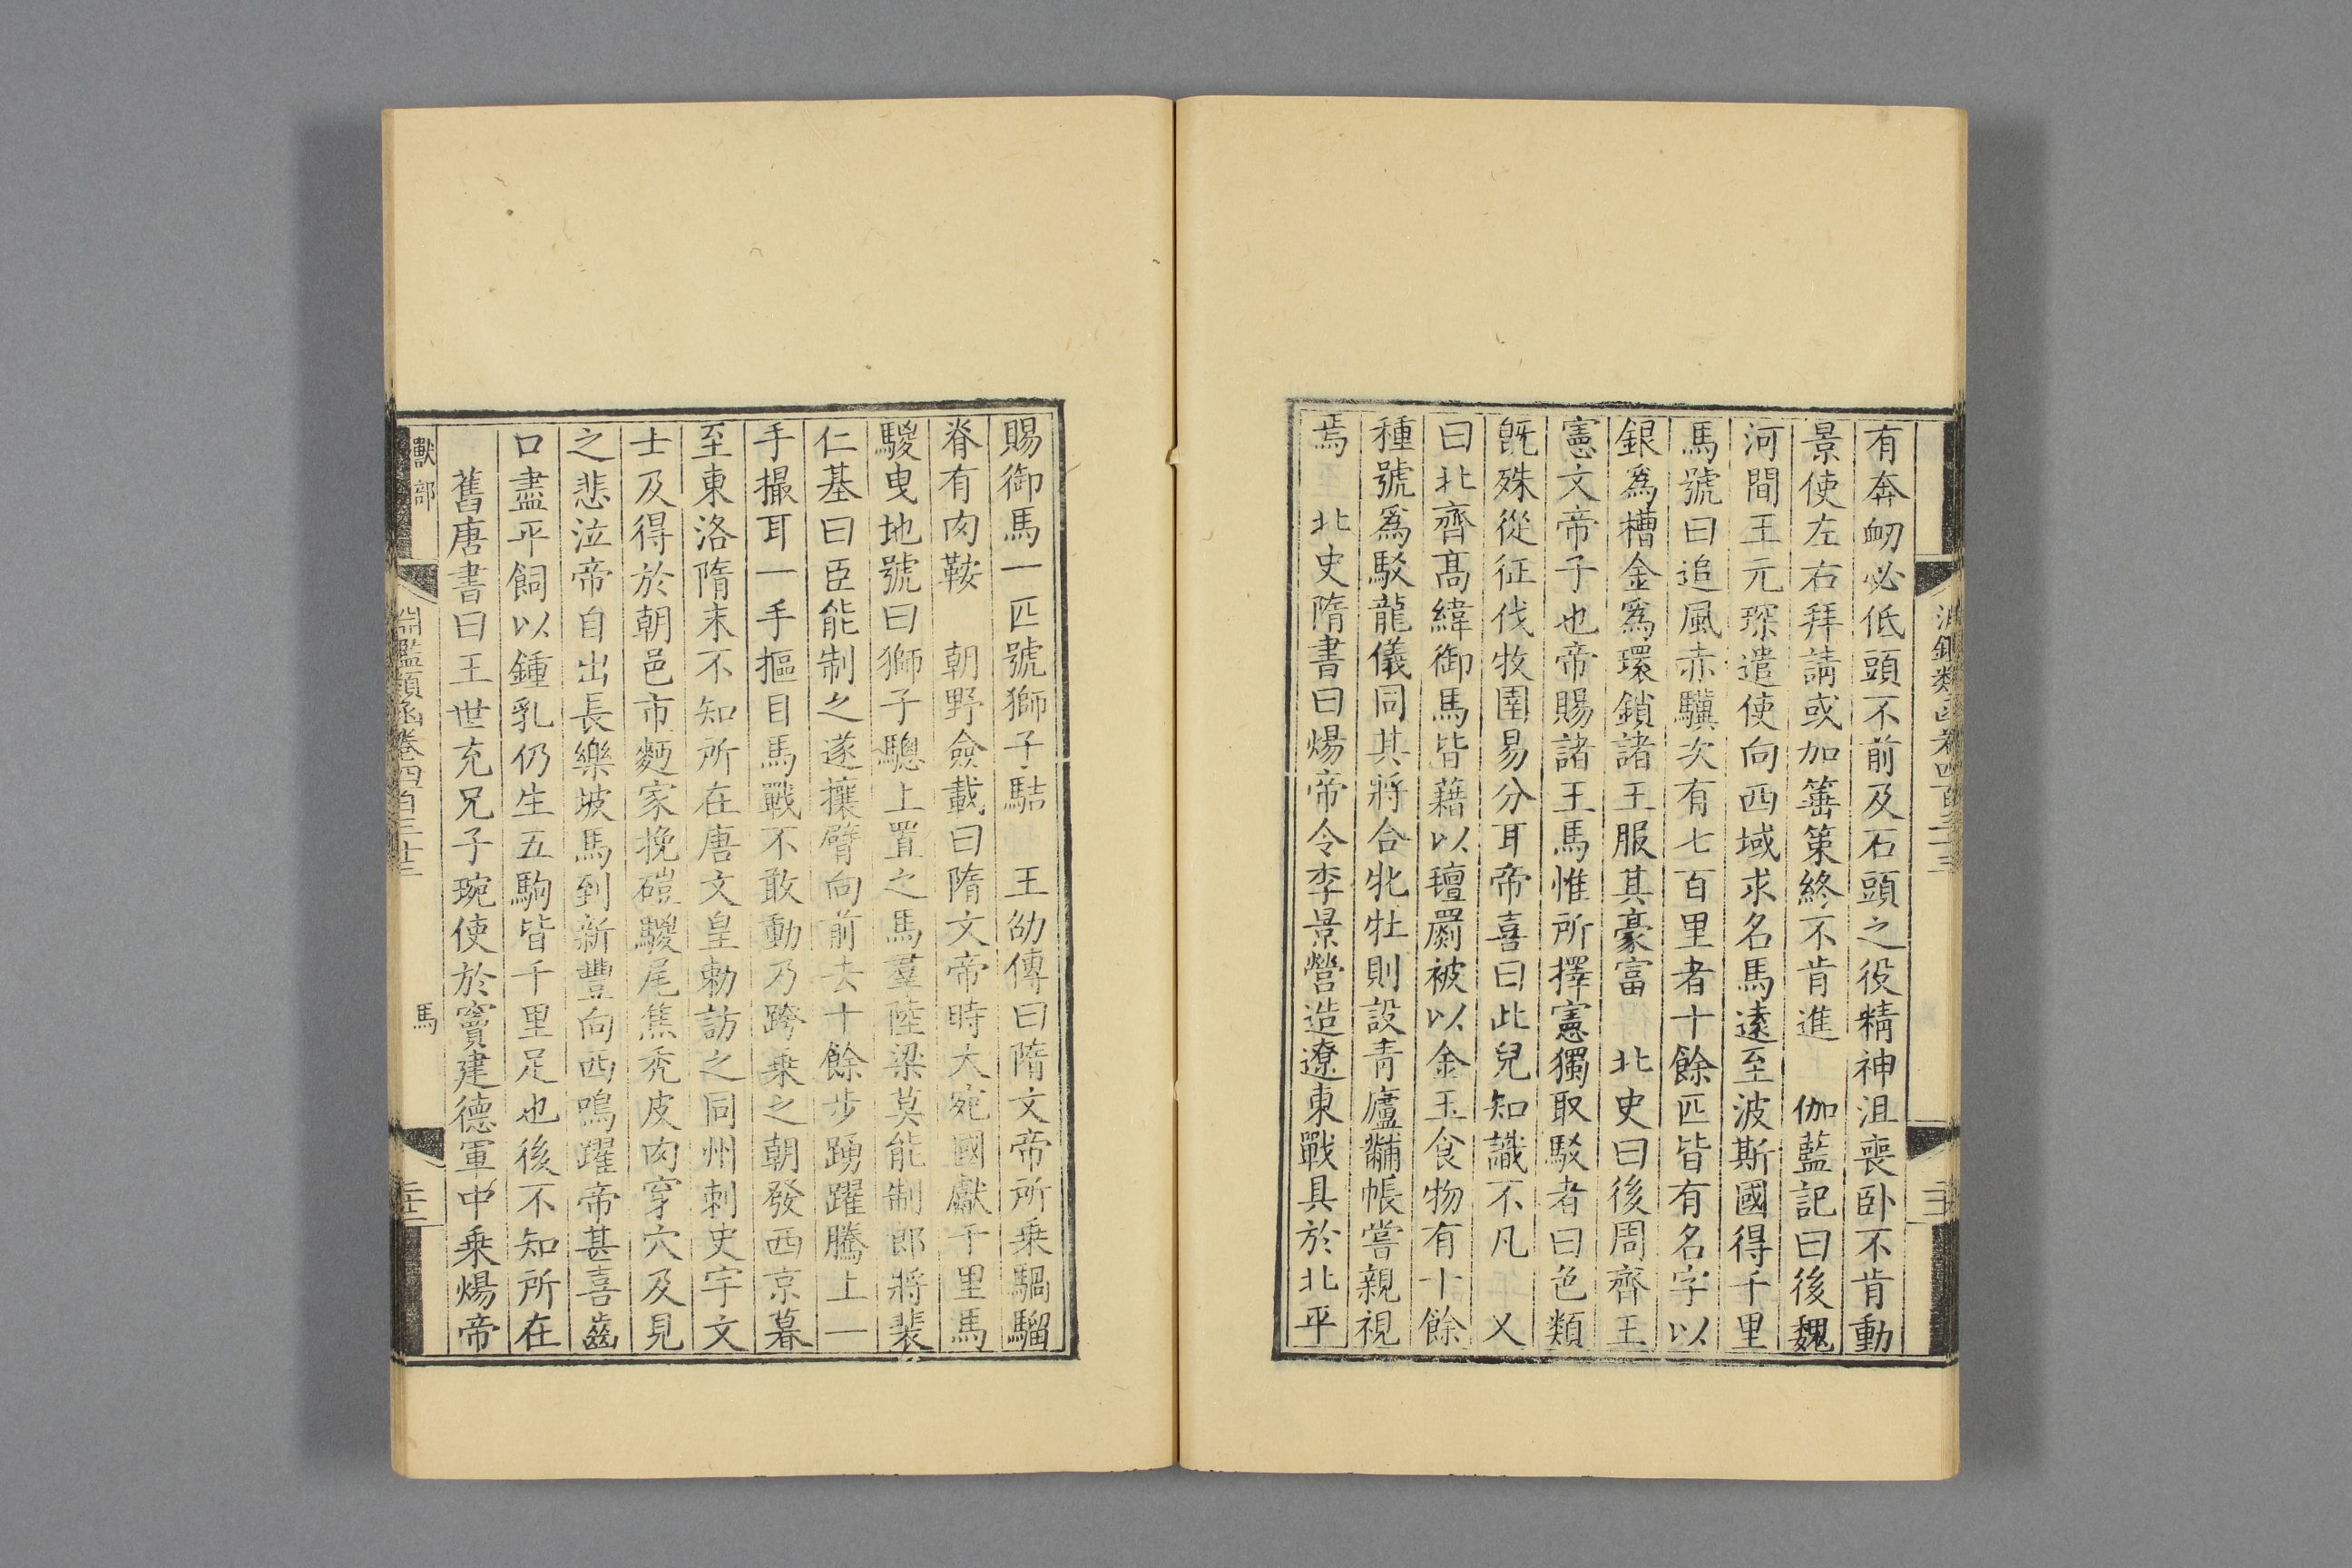 有奔衂必低頭不前及石頭之役精神沮喪卧不肯動
景使左右拜請或加箠策終不肯進 伽藍記曰後魏
河間王元琛遣使向西域求名馬遠至波斯國得千里
馬號曰追風赤驥次有七百里者十餘匹皆有名字以
銀爲槽金爲環鎖諸王服其豪富 北史曰後周齊王
憲文帝子也帝賜諸王馬惟所擇憲獨取駁者曰色類
旣殊從征伐牧圉易分耳帝喜曰此兒知識不凡 又
曰北齊高緯御馬皆藉以氊罽被以金玉食物有十餘
種號爲駁龍儀同其將合牝牡則設青廬黼帳嘗親視
焉 北史隋書曰煬帝令李景營造遼東戰具於北平
賜御馬一匹號獅子䯀 王劭傳曰隋文帝所乗騧騮
脊有肉鞍 朝野僉載曰隋文帝時大宛國獻千里馬
騣曳地號曰獅子驄上置之馬羣陸梁莫能制郎將裴
仁基曰臣能制之遂攘臂向前去十餘步踴躍騰上一
手撮耳一手摳目馬戰不敢動乃跨乗之朝發西京暮
至東洛隋末不知所在唐文皇勅訪之同州刺史宇文
士及得於朝邑市麪家挽磑騣尾焦禿皮肉穿穴及見
之悲泣帝自出長樂坡馬到新豐向西鳴躍帝甚喜齒
口盡平飼以鍾乳仍生五駒皆千里足也後不知所在
舊唐書曰王世充兄子琬使於竇建德軍中乗煬帝
獸部 淵鑑類函卷四百三十三 馬